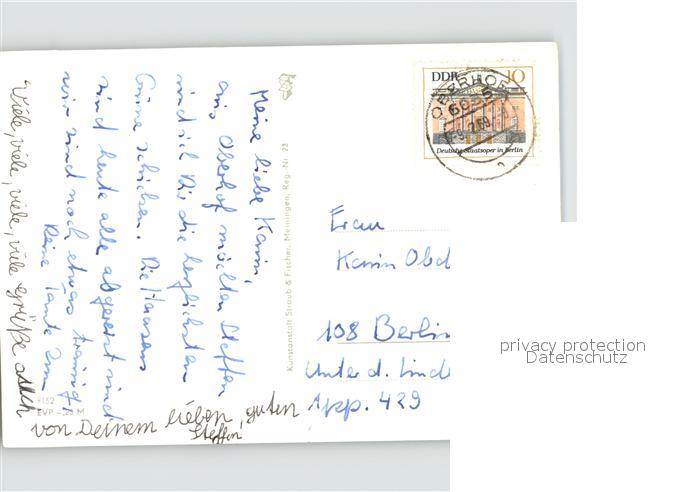 Meine liebe Karin,
aus Oberhof möchten Steffen
und ich Dir die herzlichsten
Grüße schicken. Die
sind heute alle abgereist und
wir sind noch etwas traurig,
Deine Tante
Viele, viele, viele, viele Grüße auch
von Deinem lieben, guten
Steffen
9132
EVP -,25 M
Kunstanstalt Straub & Fischer, Meiningen, Reg.-Nr. 23
DDR 10
Deutsche Staatsoper in Berlin
OBERHOF
Frau
Karin
108 Berlin
Unter d.
App. 429
privacy protection
Datenschutz